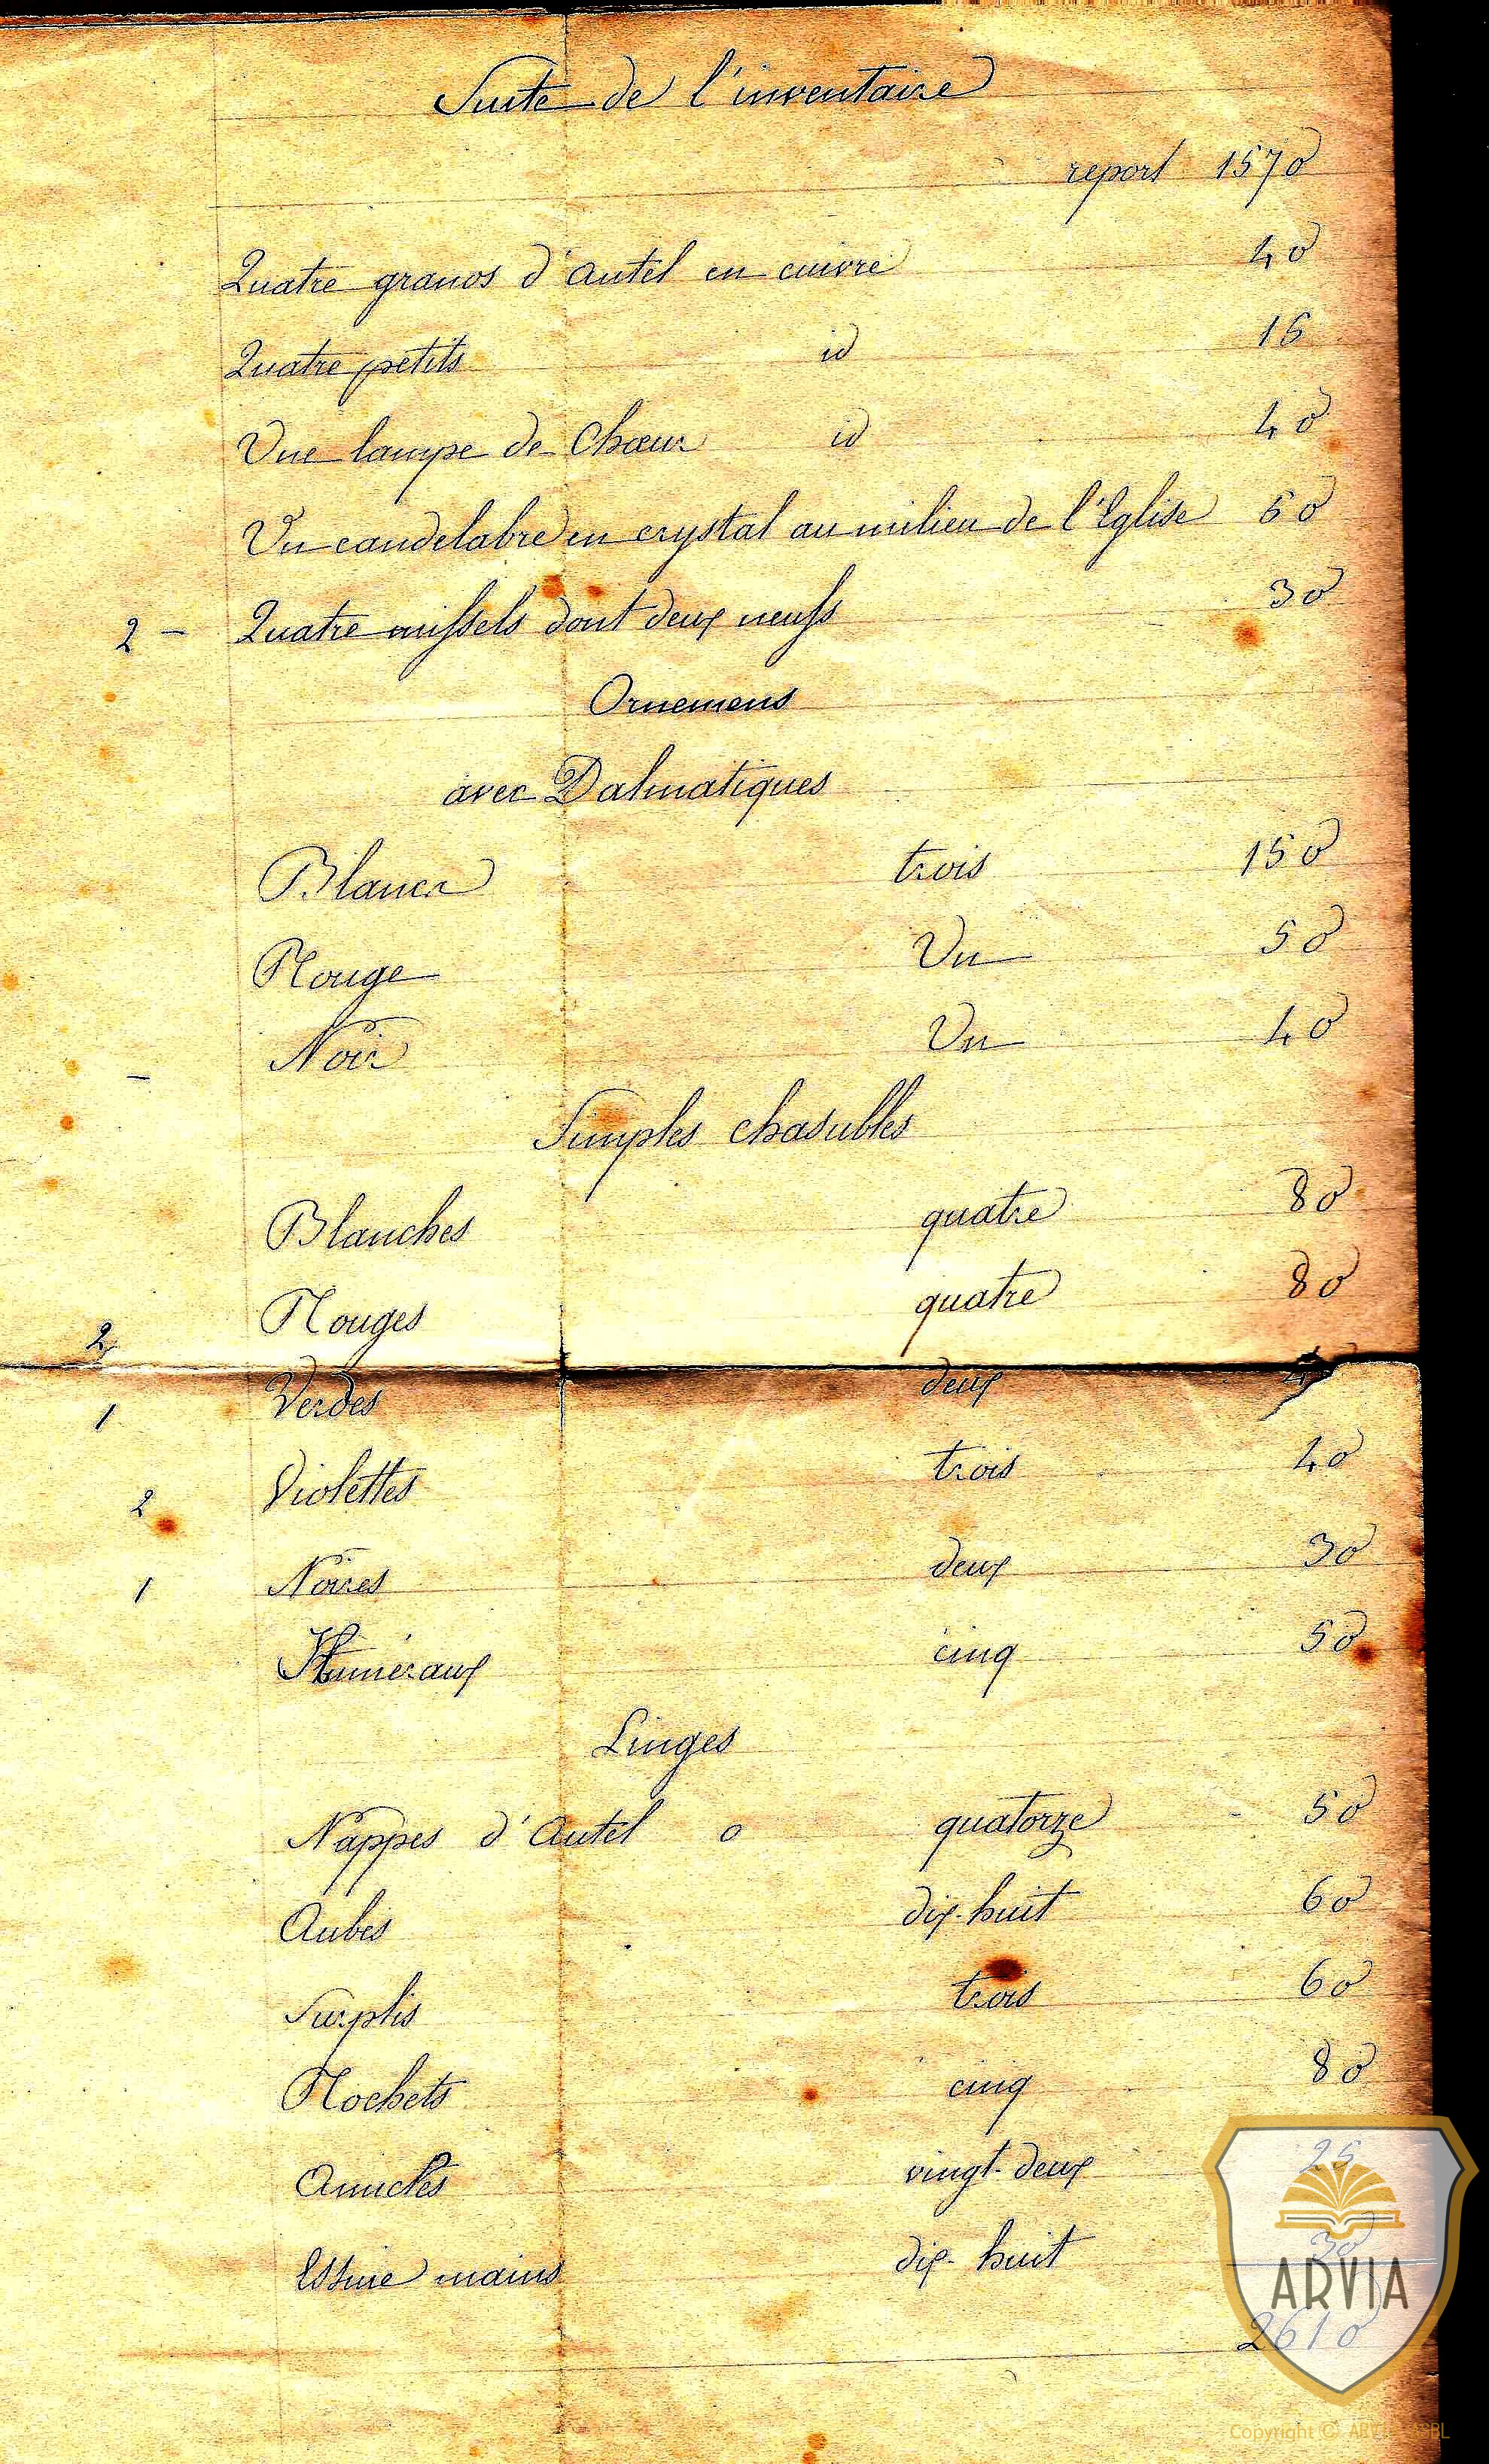 Suite de l'inventaire
report 1570
Quatre grands d'autel en cuivre 40
Quatre petits id 15
Une lampe de Chœur id 40
Un candelabre en crystal au milieu de l'Eglise 50
2 - Quatre missels dont deux neufs 30
Ornemens
avec Dalmatiques
Blancs trois 150
Rouge Un 50
- Noir Un 40
Simples chasubles
Blanches quatre 80
2 Rouges quatre 80
1 Verdes deux
2 Violettes trois 40
1 Noires deux 30
Huméraux cinq 50
Linges
Nappes d'Autel o quatorze 50
Aubes dix-huit 60
Surplis trois 60
Rochets cinq 80
Amictes vingt-deux 25
Essuie mains dix-huit 30
2610
ARVIA
Copyright © ARVIA ASBL